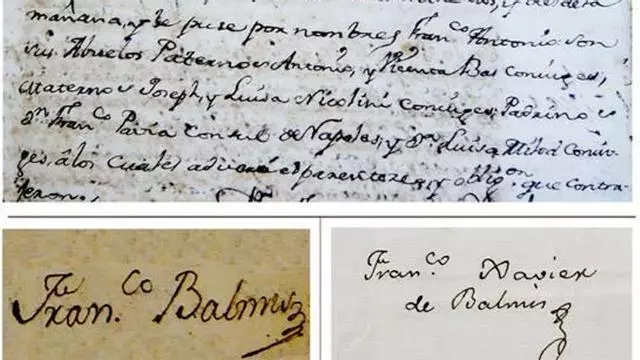 mañana, y se puse por nombres Fran.co Antonio: son
sus Abuelos Paternos Antonio, y Vicenta Bas Conuiges,
Maternos Joseph, y Luisa Nicolini conuiges: Padrinos
Dn. Franco. Pavia Consul de Napoles, y Da. Luisa Conuu-
ges â los cuales adverti el parentezco, y oblig.on que contra-
xeron.
Fran.co Balmis
Fran.co Xavier
de Balmis